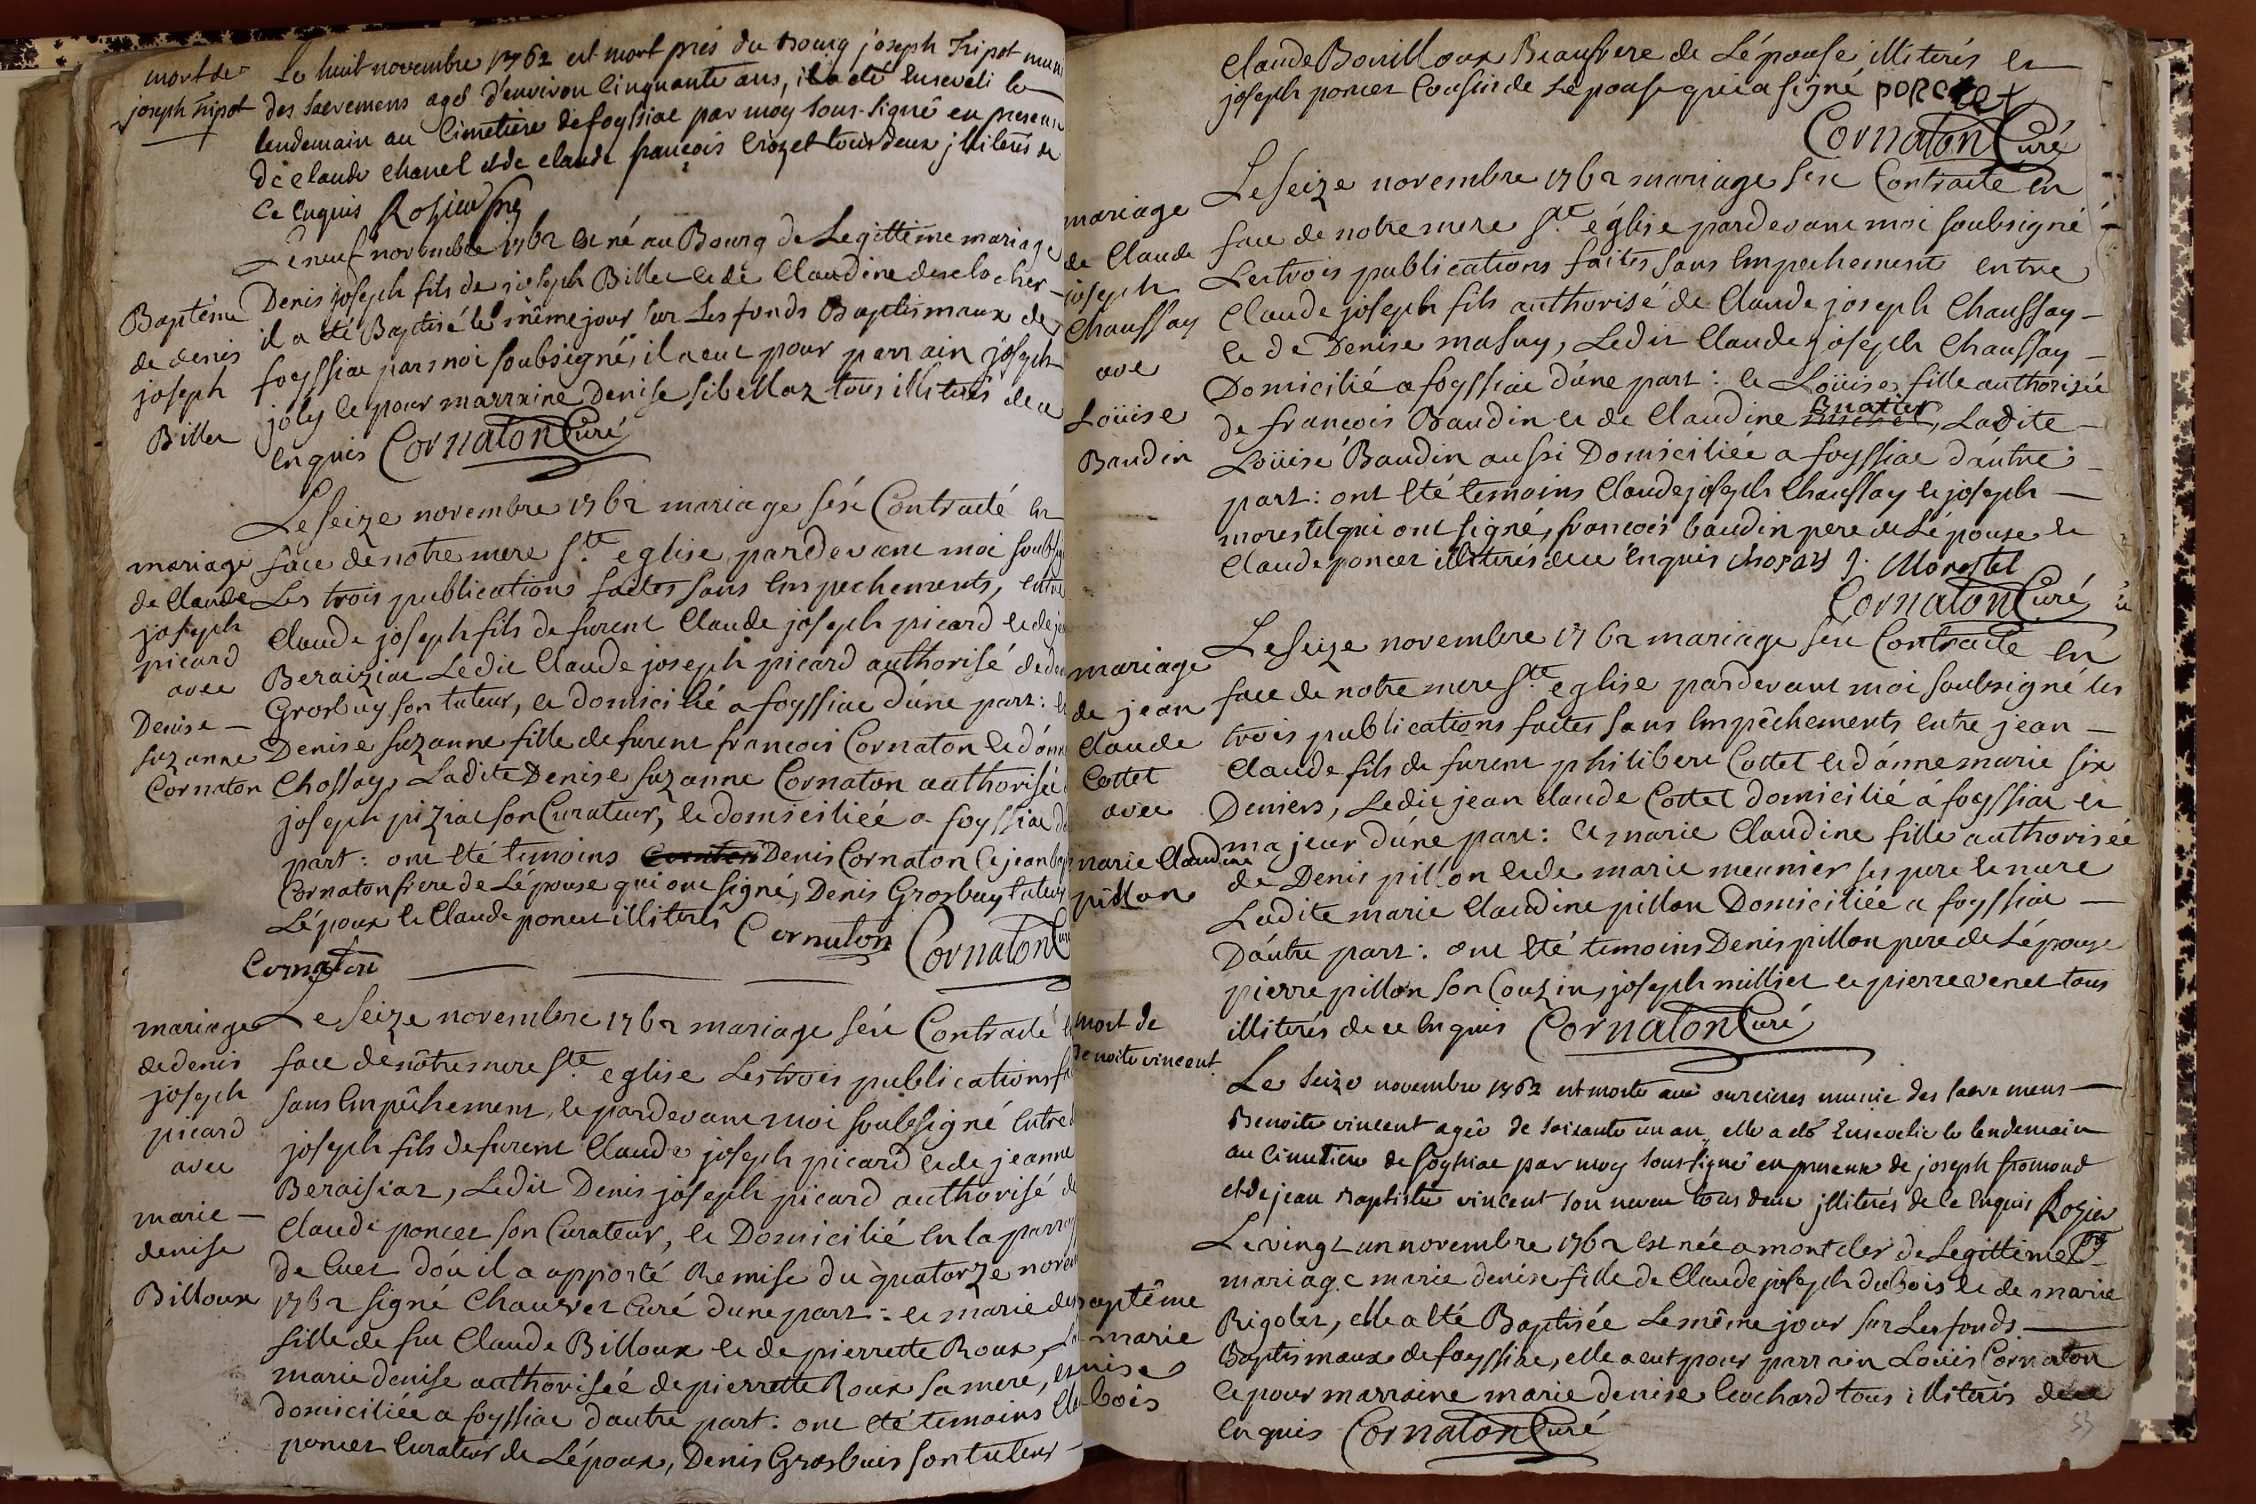 mort de
joseph Tripot
Le huit novembre 1762 est mort près du Bourg joseph Tripot muni
des sacremens agé d'environ cinquante ans, il a été enseveli le
lendemain au Cimetiere de foyssiac par moy sous-signé en presence
de claude chanel et de claude françois crozet tous deux illiterés de
ce enquis Rozier
Baptême
de denis
joseph
Billet
Le neuf novembre 1762 est né au Bourg de Legittime mariage
Denis joseph fils de joseph Billet et de Claudine desclocher
il a été Baptisé le même jour sur Les fonds Baptismaux de
foyssiac par moi soubsigné, il a eut pour parrain joseph
joly et pour marraine Denise sibellaz tous illiterés de ce
enquis Cornaton Curé
mariage
de Claude
joseph
picard
avec
Denise —
suzanne
Cornaton
Le seize novembre 1762 mariage s'ést Contracté en
face de notre mere Ste eglise, pardevant moi soubsig
Les trois publications faites sans Empechements, entre
Claude joseph fils de furent Claude joseph picard et de je
Beraiziat Ledit Claude joseph picard authorisé de de
Grosbuy son tuteur, et domicilié a foyssiac d'une part: et
Denise suzanne fille de furent francois Cornaton et d'ann
Chossay, Ladite Denise suzanne Cornaton authorisée
joseph piziat son Curateur, et domiciliée a foyssiac d
part: ont été temoins Denis Cornaton et jean bap
Cornaton frere de L'épouse qui ont signé, Denis Grosbuy tuteur
L'époux et Claude poncet illiterés Cornaton Cornaton Cur
Cornaton
mariage
de denis
joseph
picard
avec
marie —
denise
Billoux
Le seize novembre 1762 mariage s'ést Contracté e
face de nôtre mere Ste eglise Les trois publications fa
sans Empêchement, et pardevant moi soubsigné Entre
joseph fils de furent Claude joseph picard et de jeanne
Beraisiat, Ledit Denis joseph picard authorisé d
Claude poncet son Curateur, et Domicilié en la parro
de Cuet d'óu il a apporté Remise du quatorze novem
1762 signé Chauvet Curé d'une part: et marie de
fille de fut Claude Billoux et de pierrette Roux,
marie denise authorisée de pierrette Roux sa mere, et
domiciliée a foyssiac d'autre part: ont été temoins Cla
poncet Curateur de L'époux, Denis Grosbuis son tuteur —
Claude Bouilloux Beaufrere de L'épouse illiterés et
joseph poncet Cousin de L'epouse qui a signé poncet
Cornaton Curé
mariage
de Claude
joseph
Chaussay
avec
Loüise
Baudin
Le seize novembre 1762 mariage s'est Contracté en
face de notre mere Ste église pardevant moi soubsigné
Les trois publications faites sans Empechement entre
Claude joseph fils authorisé de Claude joseph Chaussay —
et de Denise masuy, Ledit Claude joseph Chaussay —
Domicilié a foyssiac d'une part: et Loüise, fille authorisée
de francois Baudin et de Claudine Buatier, Ladite —
Loüise Baudin aussi Domiciliée a foyssiac d'autre —
part: ont été temoins Claude joseph Chaussay et joseph —
morestel qui ont signé, francois baudin pere de L'épouse et
Claude poncet illiterés de ce Enquis chosay J. Morestel
Cornaton Curé
mariage
de jean
Claude
Cottet
avec
marie Claudine
pillon
Le seize novembre 1762 mariage s'ést Contracté en
face de notre mere Ste eglise pardevant moi soubsigné les
trois publications faites sans Empêchements entre jean —
Claude fils de furent philibert Cottet et d'anne marie six
Deniers, Ledit jean claude Cottet domicilié á foyssiac et
majeur d'une part: et marie Claudine fille authorisée
de Denis pillon et de marie meunier ses pere et mere
Ladite marie Claudine pillon Domiciliée a foyssiac —
D'autre part: ont été temoins Denis pillon pere de L'épouse
pierre pillon son Couzin, joseph millier et pierre venet tous
illiterés de ce Enquis Cornaton Curé
mort de
Benoite vincent
Le seize novembre 1762 est morte aux ourcières munie des sacremens —
Benoite vincent agée de soixante un an, elle a été Ensevelie le lendemain
au Cimetiere de foyssiac par moy sous-signé en presence de joseph fromond
et de jean Baptiste vincent son neveu tous deux illiterés de ce Enquis Rozier
aptême
marie
nise
bois
Le vingt un novembre 1762 est née a montcler de Legittime
mariage marie denise fille de Claude joseph duBois et de marie
Rigolet, elle a été Baptisée Le même jour sur Les fonds —
Baptismaux de foyssiac, elle a eut pour parrain Loüis Cornaton
et pour marraine marie denise Cochard tous illiterés de ce
enquis Cornaton Curé
53